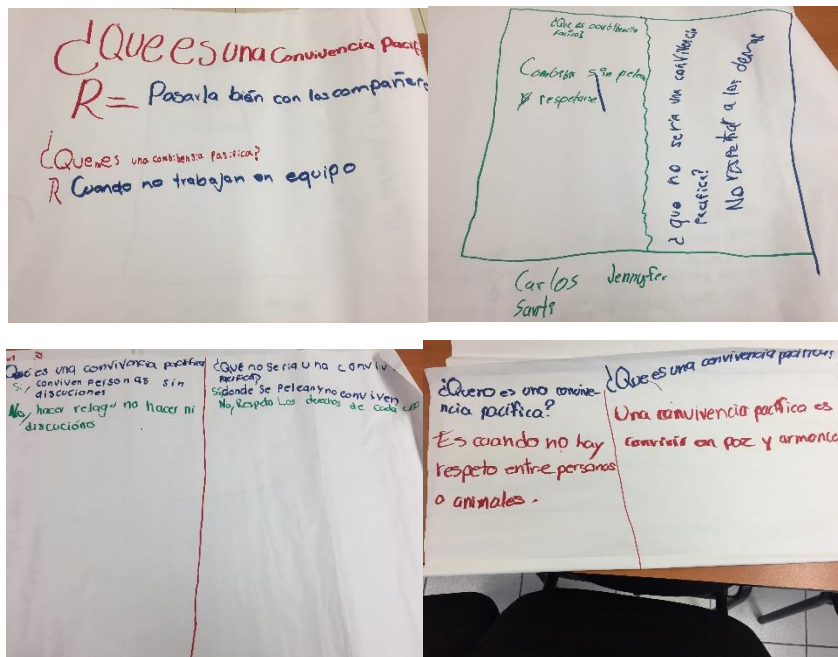 ¿Que es una convivencia pacif
R= Pasarla bién con los compañer
¿Que no es una combibensia pasifica?
R Cuando no trabajan en equipo
¿Que es combibencia
pacifica?
Combibir sin pelea
y respetarse
¿ que no seria una convivencia
pacifica?
No respetar a los demas
Carlos Jennyfer
Santi
Que es una convivencia pacifica
Si, conviven personas sin
discuciones
No, hacer relago no hacer ni
discuciónes
¿Qué no seria una conviv.
pacifica?
Si donde se pelean y no conviven
No, Respeto Los derechos de cada
¿Que no es una convive-
ncia pacífica?
Es cuando no hay
respeto entre personas
o animales.
¿Que es una convivencia pacificas
Una convivencia pacífica es
convivir en paz y armonia